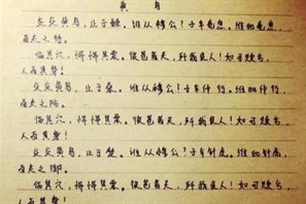 黄 鸟
交交黄鸟,止于棘。谁从穆公?子车奄息。维此奄息,
百夫之特。
临其穴,惴惴其栗。彼苍者天,歼我良人!如可赎兮,
人百其身!
交交黄鸟,止于桑。谁从穆公?子车仲行。维此仲行,
百夫之防。
临其穴,惴惴其栗。彼苍者天,歼我良人!如可赎兮,
人百其身!
交交黄鸟,止于楚。谁从穆公?子车针虎。维此针虎,
百夫之御。
临其穴,惴惴其栗。彼苍者天,歼我良人!如可赎兮,
人百其身!